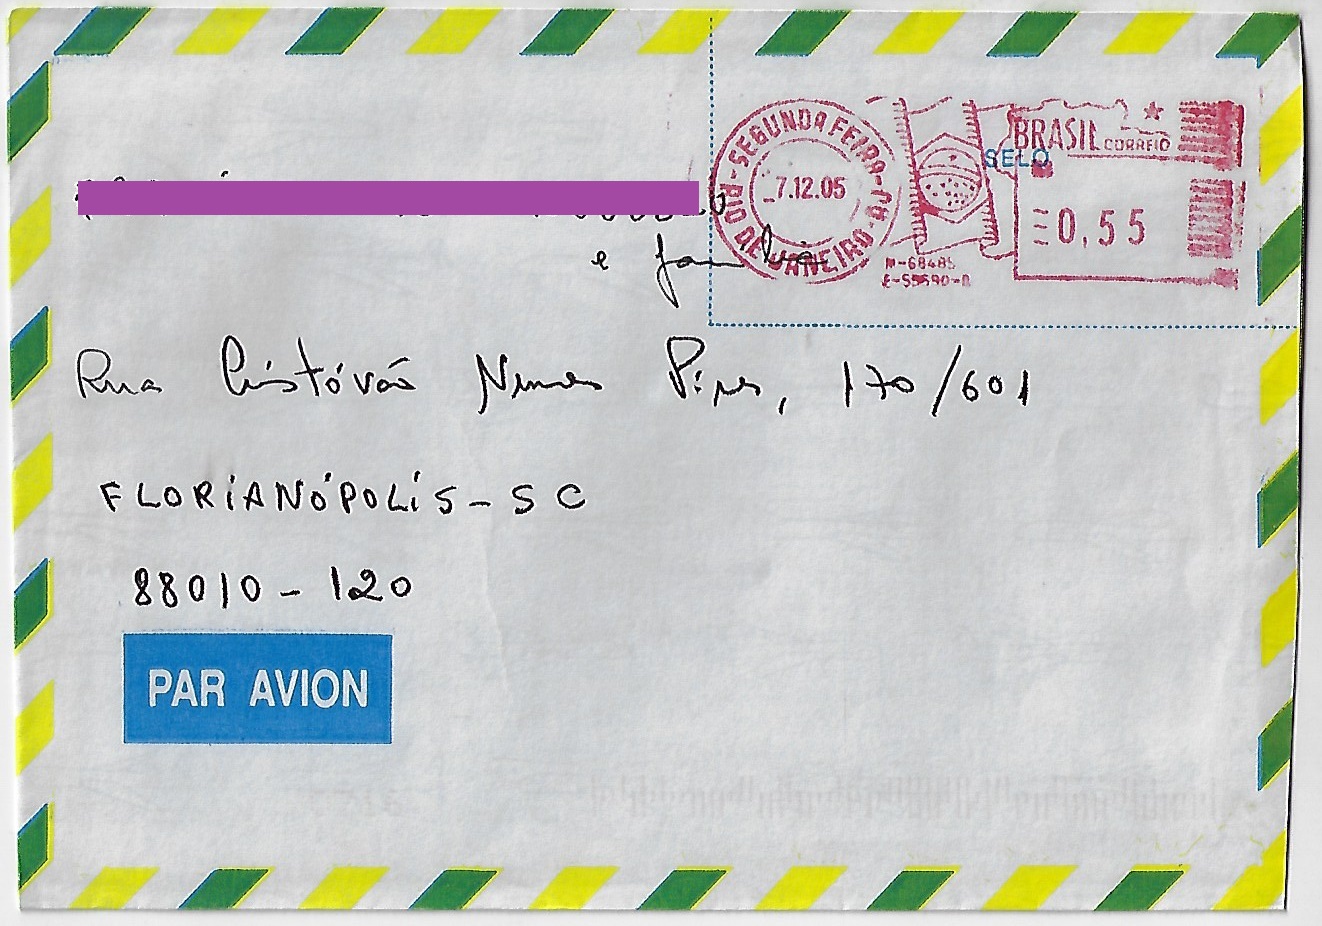 SEGUNDA FEIRA-
RIO DE JANEIRO-
7.12.05
BRASIL
CORREIO
SELO
=0,55
M-68485
e família
Rua Cristóvão Nunes Pires, 170/601
FLORIANÓPOLIS-SC
88010-120
PAR AVION